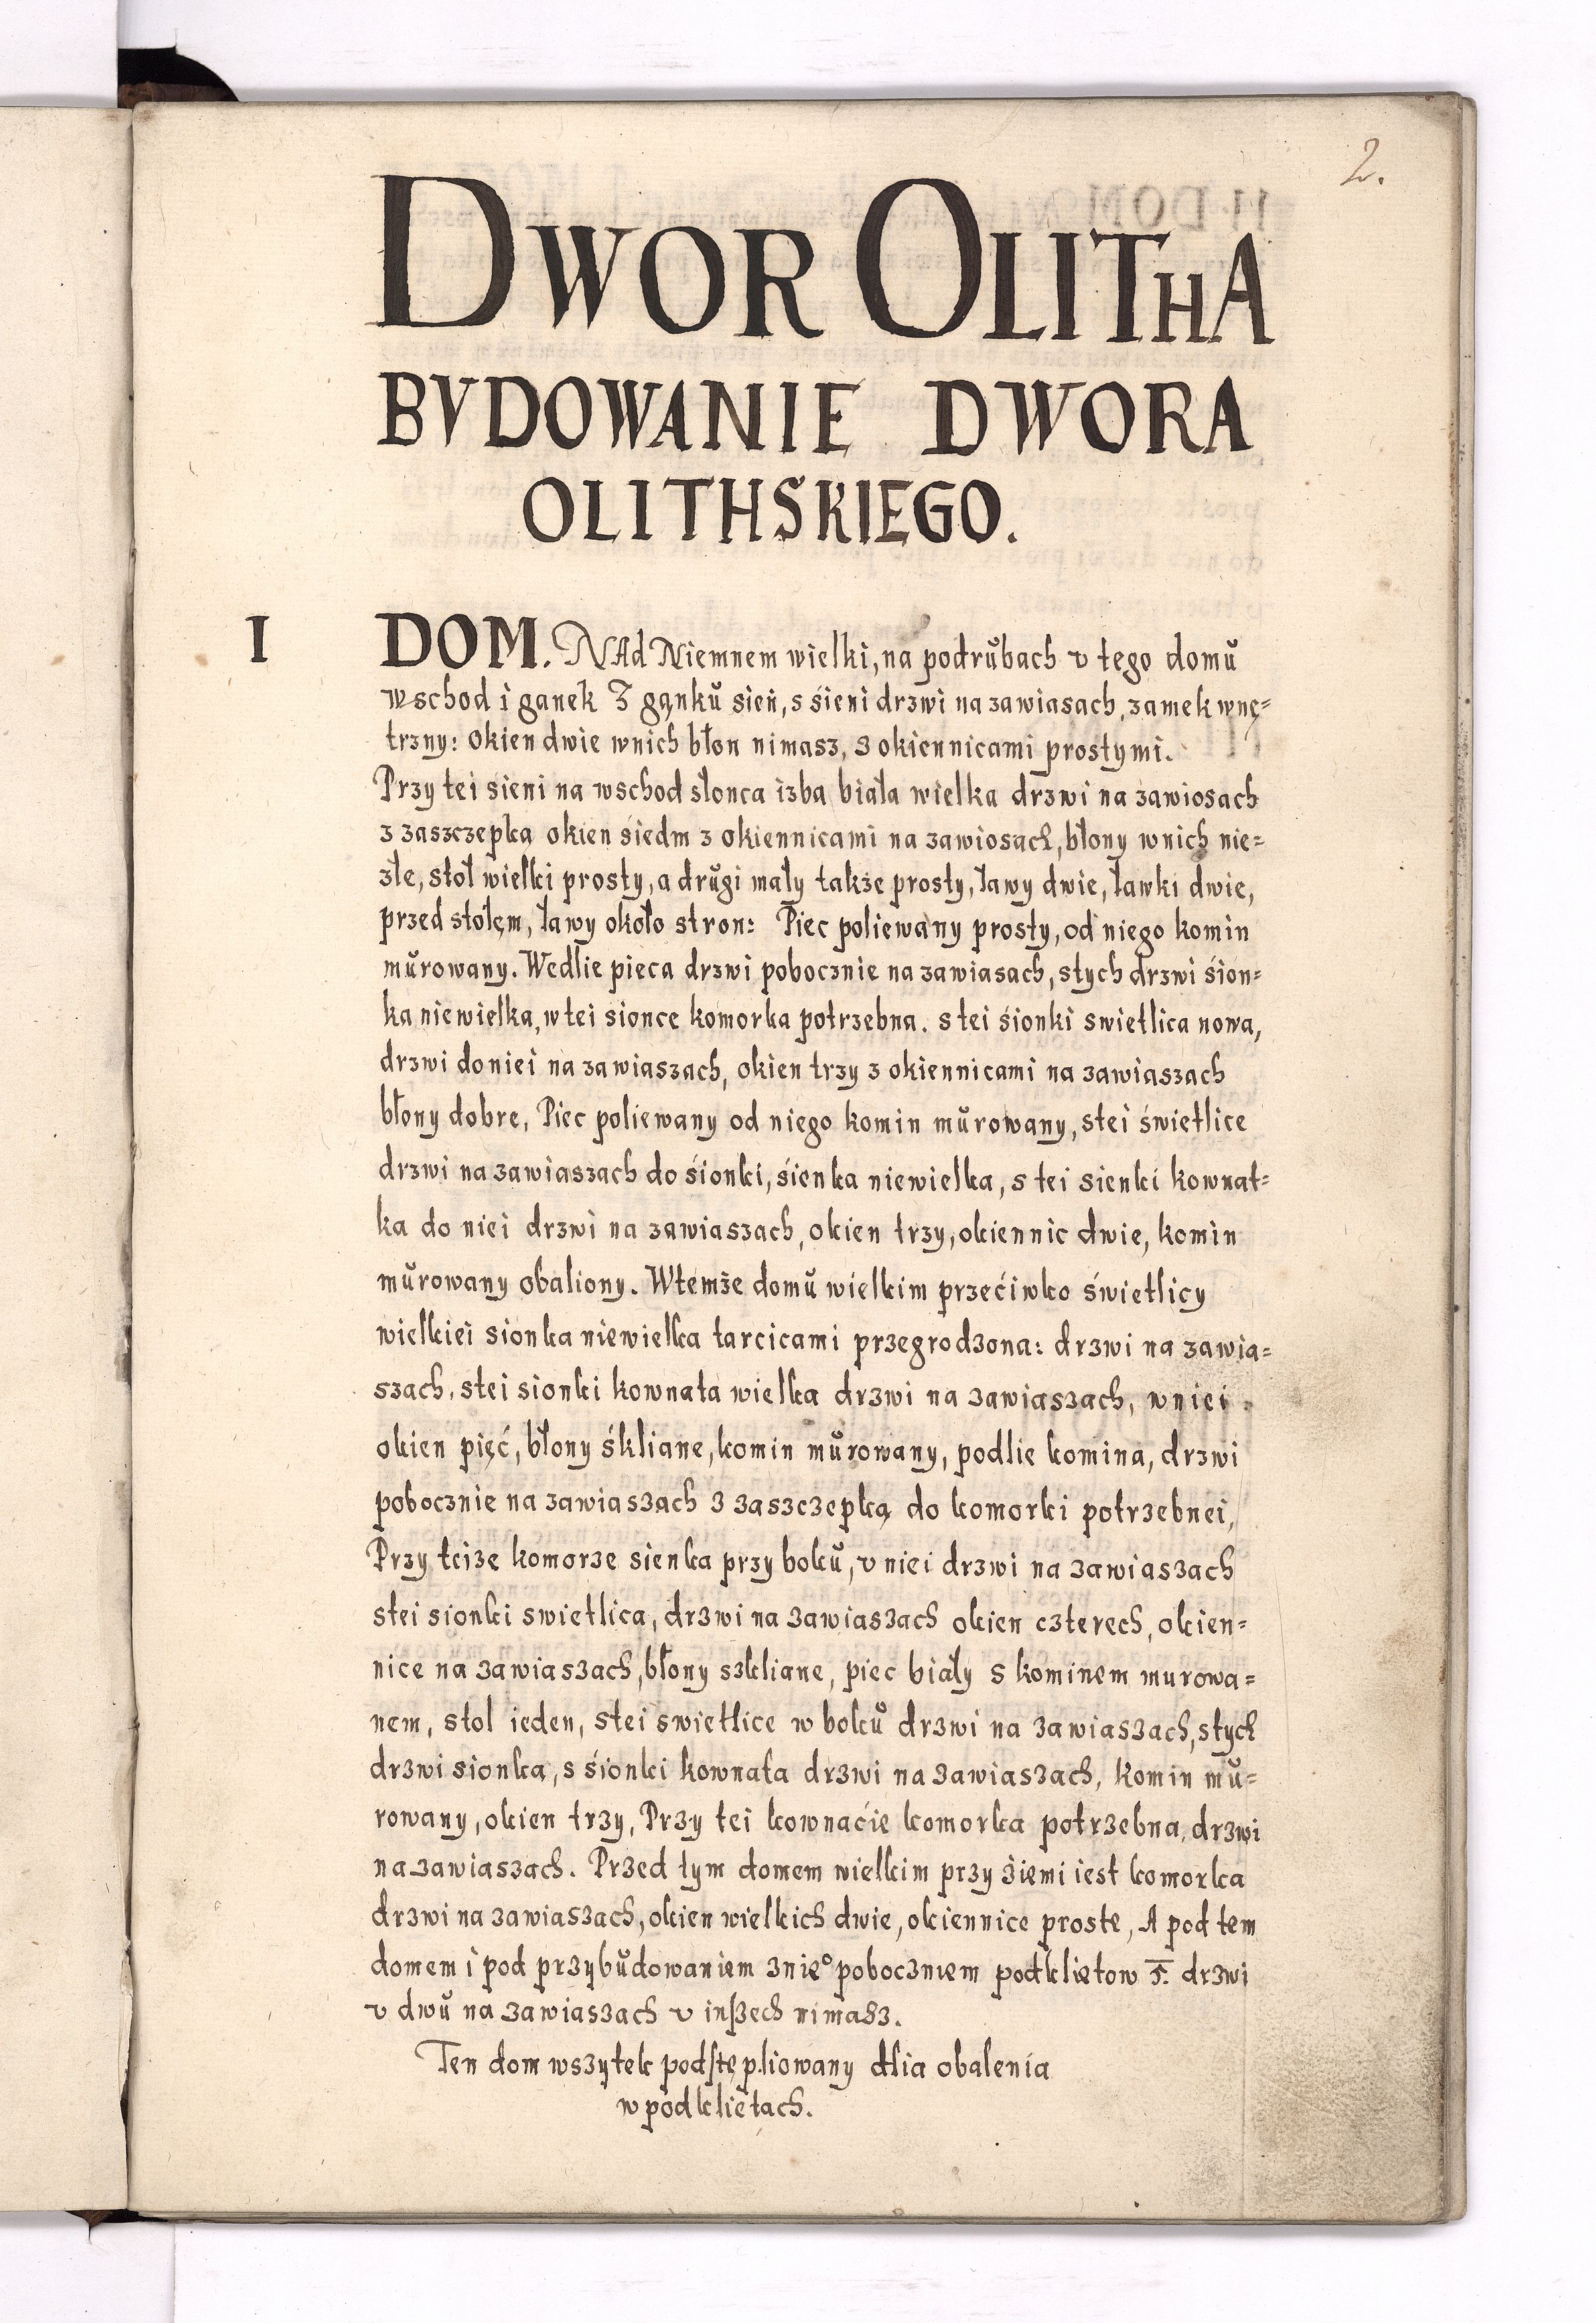 2.
DWOR OLITHA
BVDOWANIE DWORA
OLITHSKIEGO.
I DOM. NAd Niemnem wielki, na podrůbach v tego domů
wschod i ganek Z gąnků sień, s śieni drzwi na zawiasach, zamek wnę=
trzny: Okien dwie wnich błon nimasz, z okiennicami prostymi.
Przy tei sieni na wschod słonca izba biała wielka drzwi na zawiosach
z zaszczepką okien śiedm z okiennicami na zawiosach, błony wnich nie=
złe, stoł wielki prosty, a drůgi mały także prosty, ławy dwie, ławki dwie,
przed stołęm, ławy około stron: Piec poliewany prosty, od niego komin
můrowany. Wedlie pieca drzwi pobocznie na zawiasach, stych drzwi śion=
ka niewielka, w tei sionce komorka potrzebna. s tei śionki swietlica nowa,
drzwi do niei na zawiaszach, okien trzy z okiennicami na zawiaszach
błony dobre, Piec poliewany od niego komin můrowany, stei świetlice
drzwi na zawiaszach do śionki, śienka niewielka, s tei sienki kownat=
ka do niei drzwi na zawiaszach, okien trzy, okiennic dwie, komin
můrowany obaliony. Wtemże domů wielkim przećiwko świetlicy
wielkiei sionka niewielka tarcicami przegrodzona: drzwi na zawia=
szach, stei sionki kownata wielka drzwi na zawiaszach, wniei
okien pięć, błony śkliane, komin můrowany, podlie komina, drzwi
pobocznie na zawiaszach z zaszczepką do komorki potrzebnei,
Przy teize komorze sienka przy boků, v niei drzwi na zawiaszach
stei sionki swietlica, drzwi na zawiaszach okien czterech, okien=
nice na zawiaszach, błony szkliane, piec biały s kominem murowa=
nem, stol ieden, stei swietlice w boků drzwi na zawiaszach, stych
drzwi sionka, s śionki kownata drzwi na zawiaszach, komin mů=
rowany, okien trzy, Przy tei kownaćie komorka potrzebna, drzwi
na zawiaszach. Przed tym domem wielkim przy żiemi iest komorka
drzwi na zawiaszach, okien wielkich dwie, okiennice proste, A pod tem
domem i pod przybůdowaniem znie° poboczniem podklietow 5. drzwi
v dwů na zawiaszach v inßech nimasz.
Ten dom wszytek podstępliowany dlia obalenia
w podklietach.